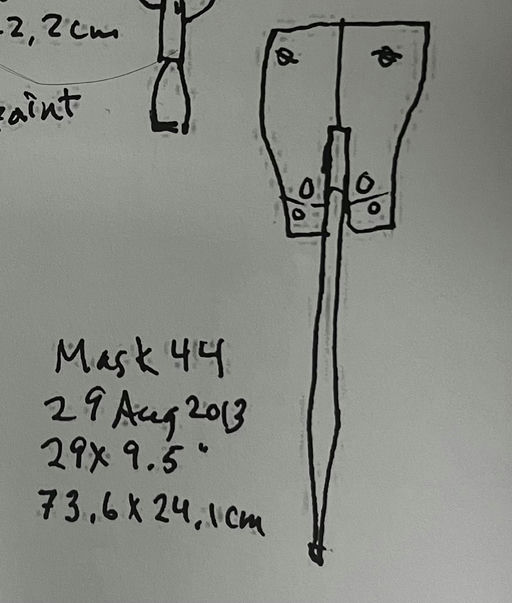 2,2cm
aint
Mask 44
29 Aug 2013
29 x 9.5"
73.6 x 24.1cm